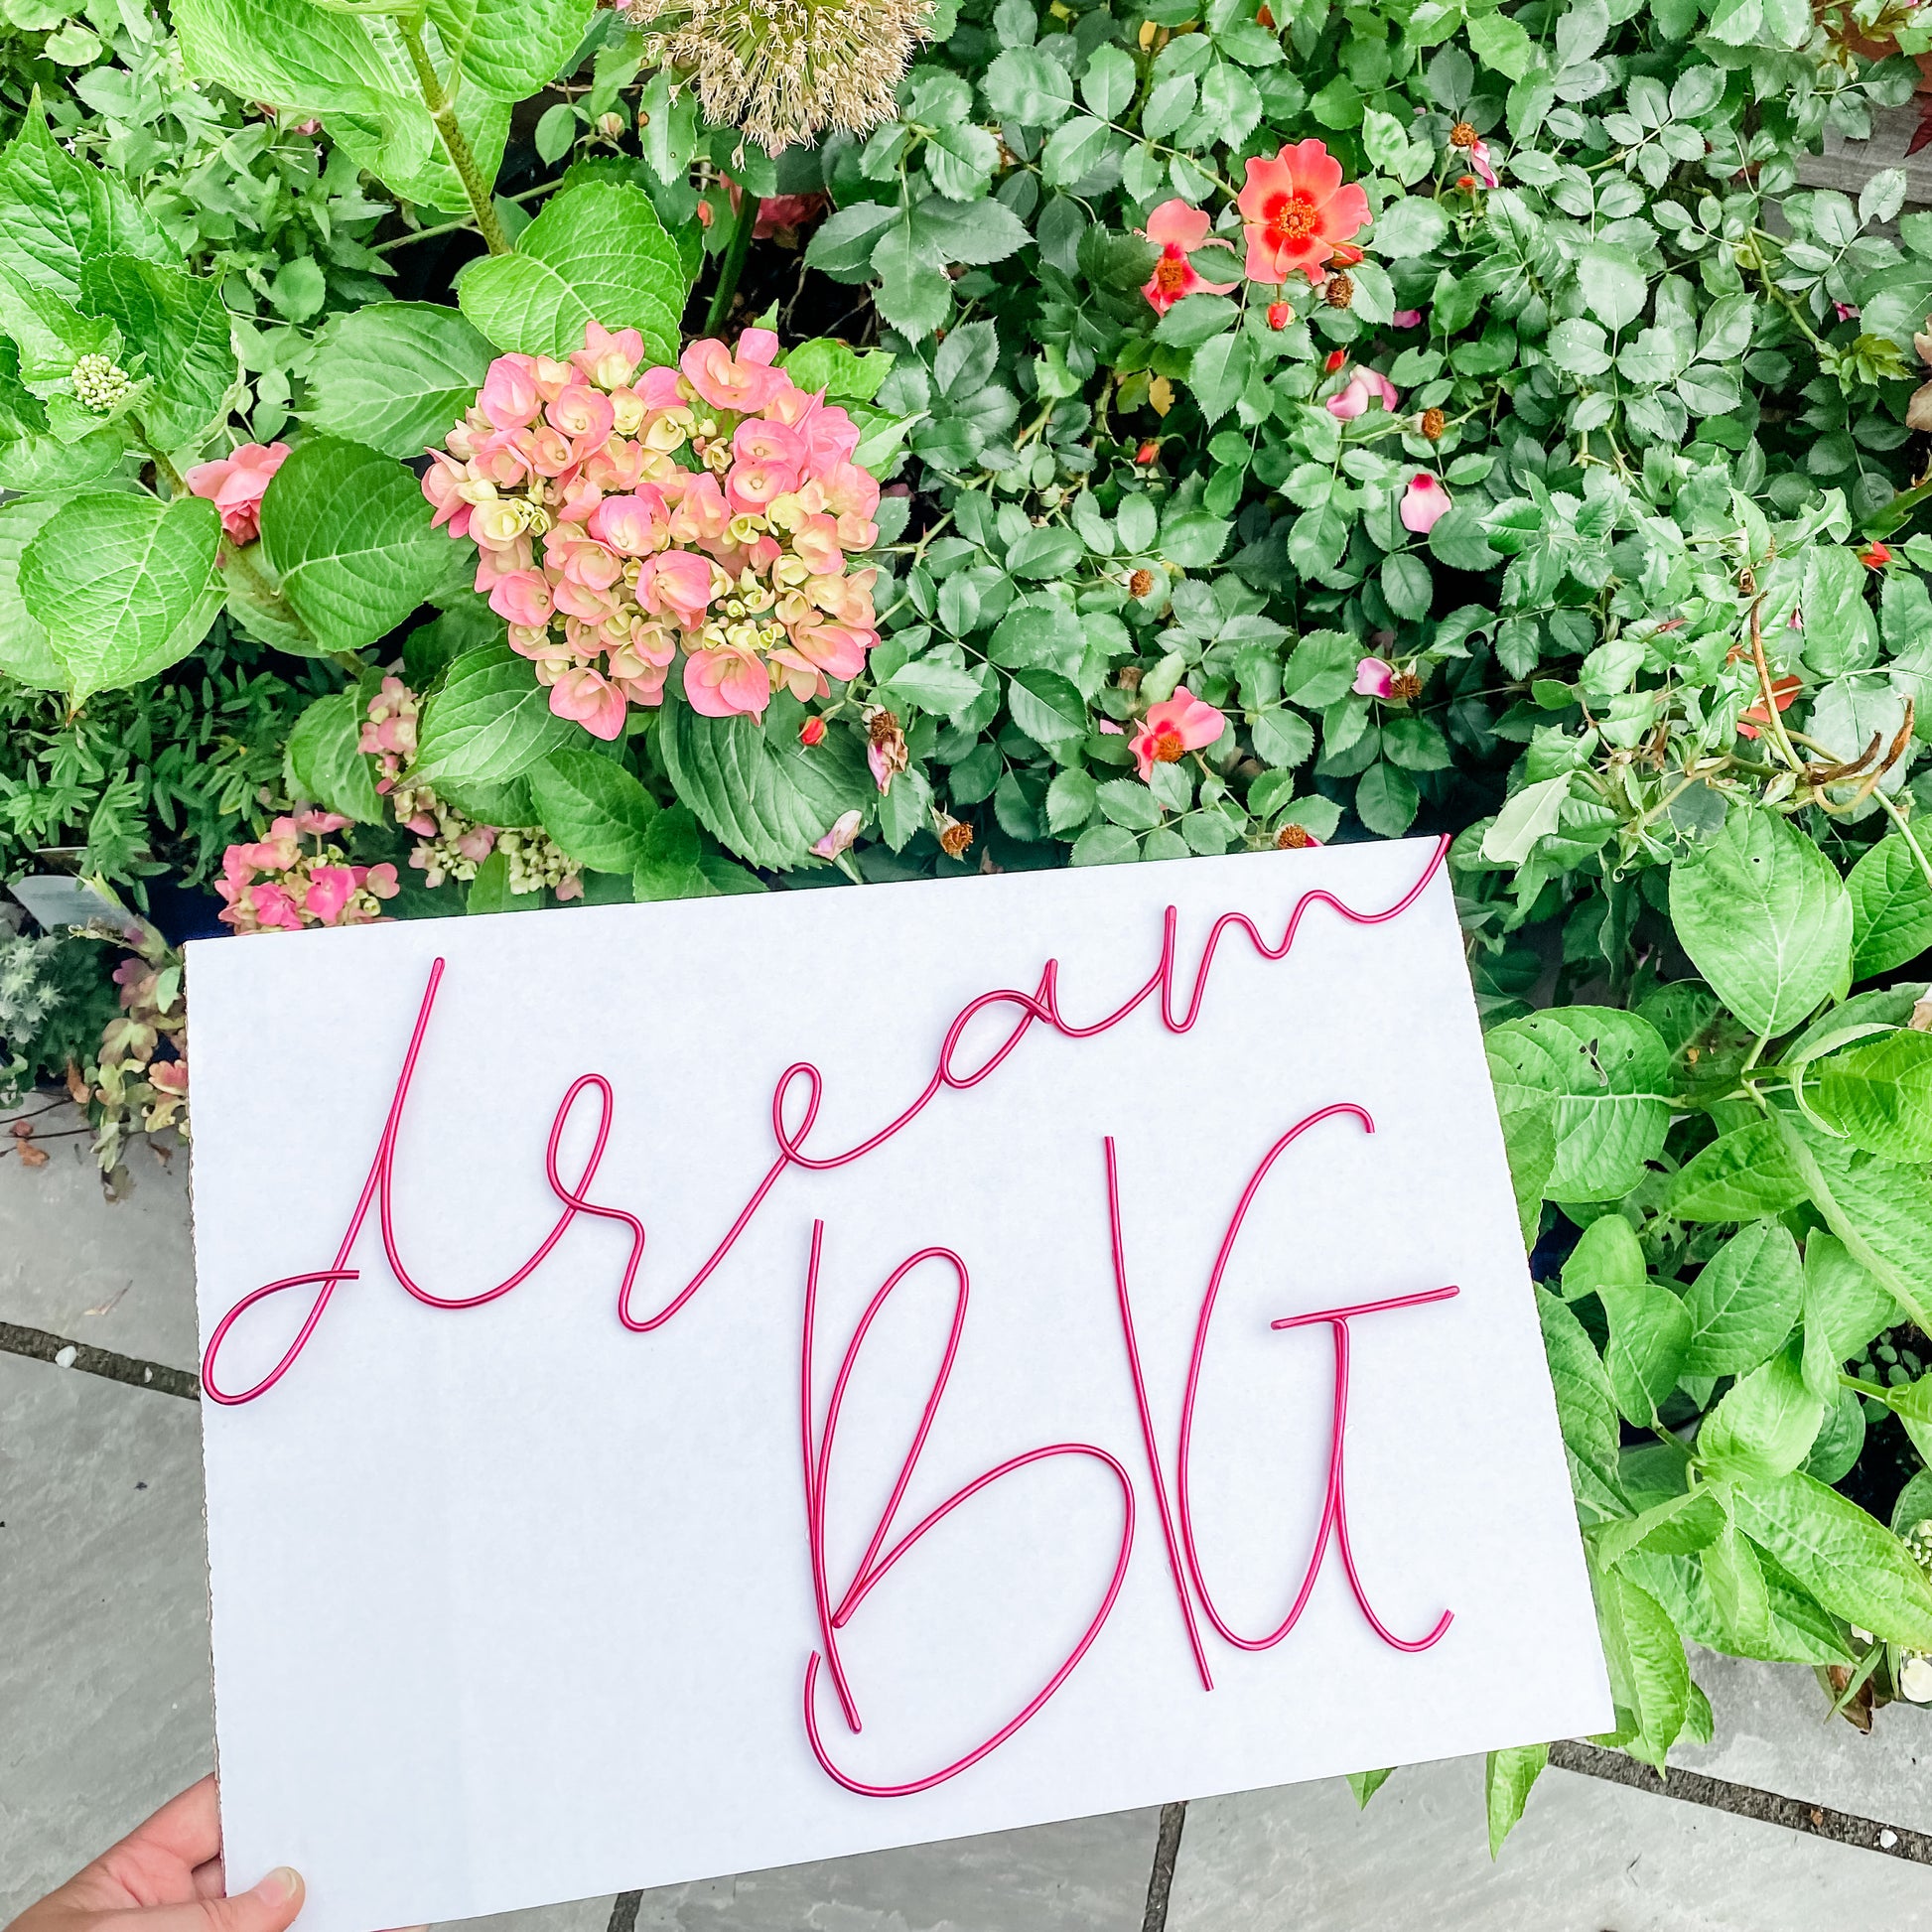 dream
BIG